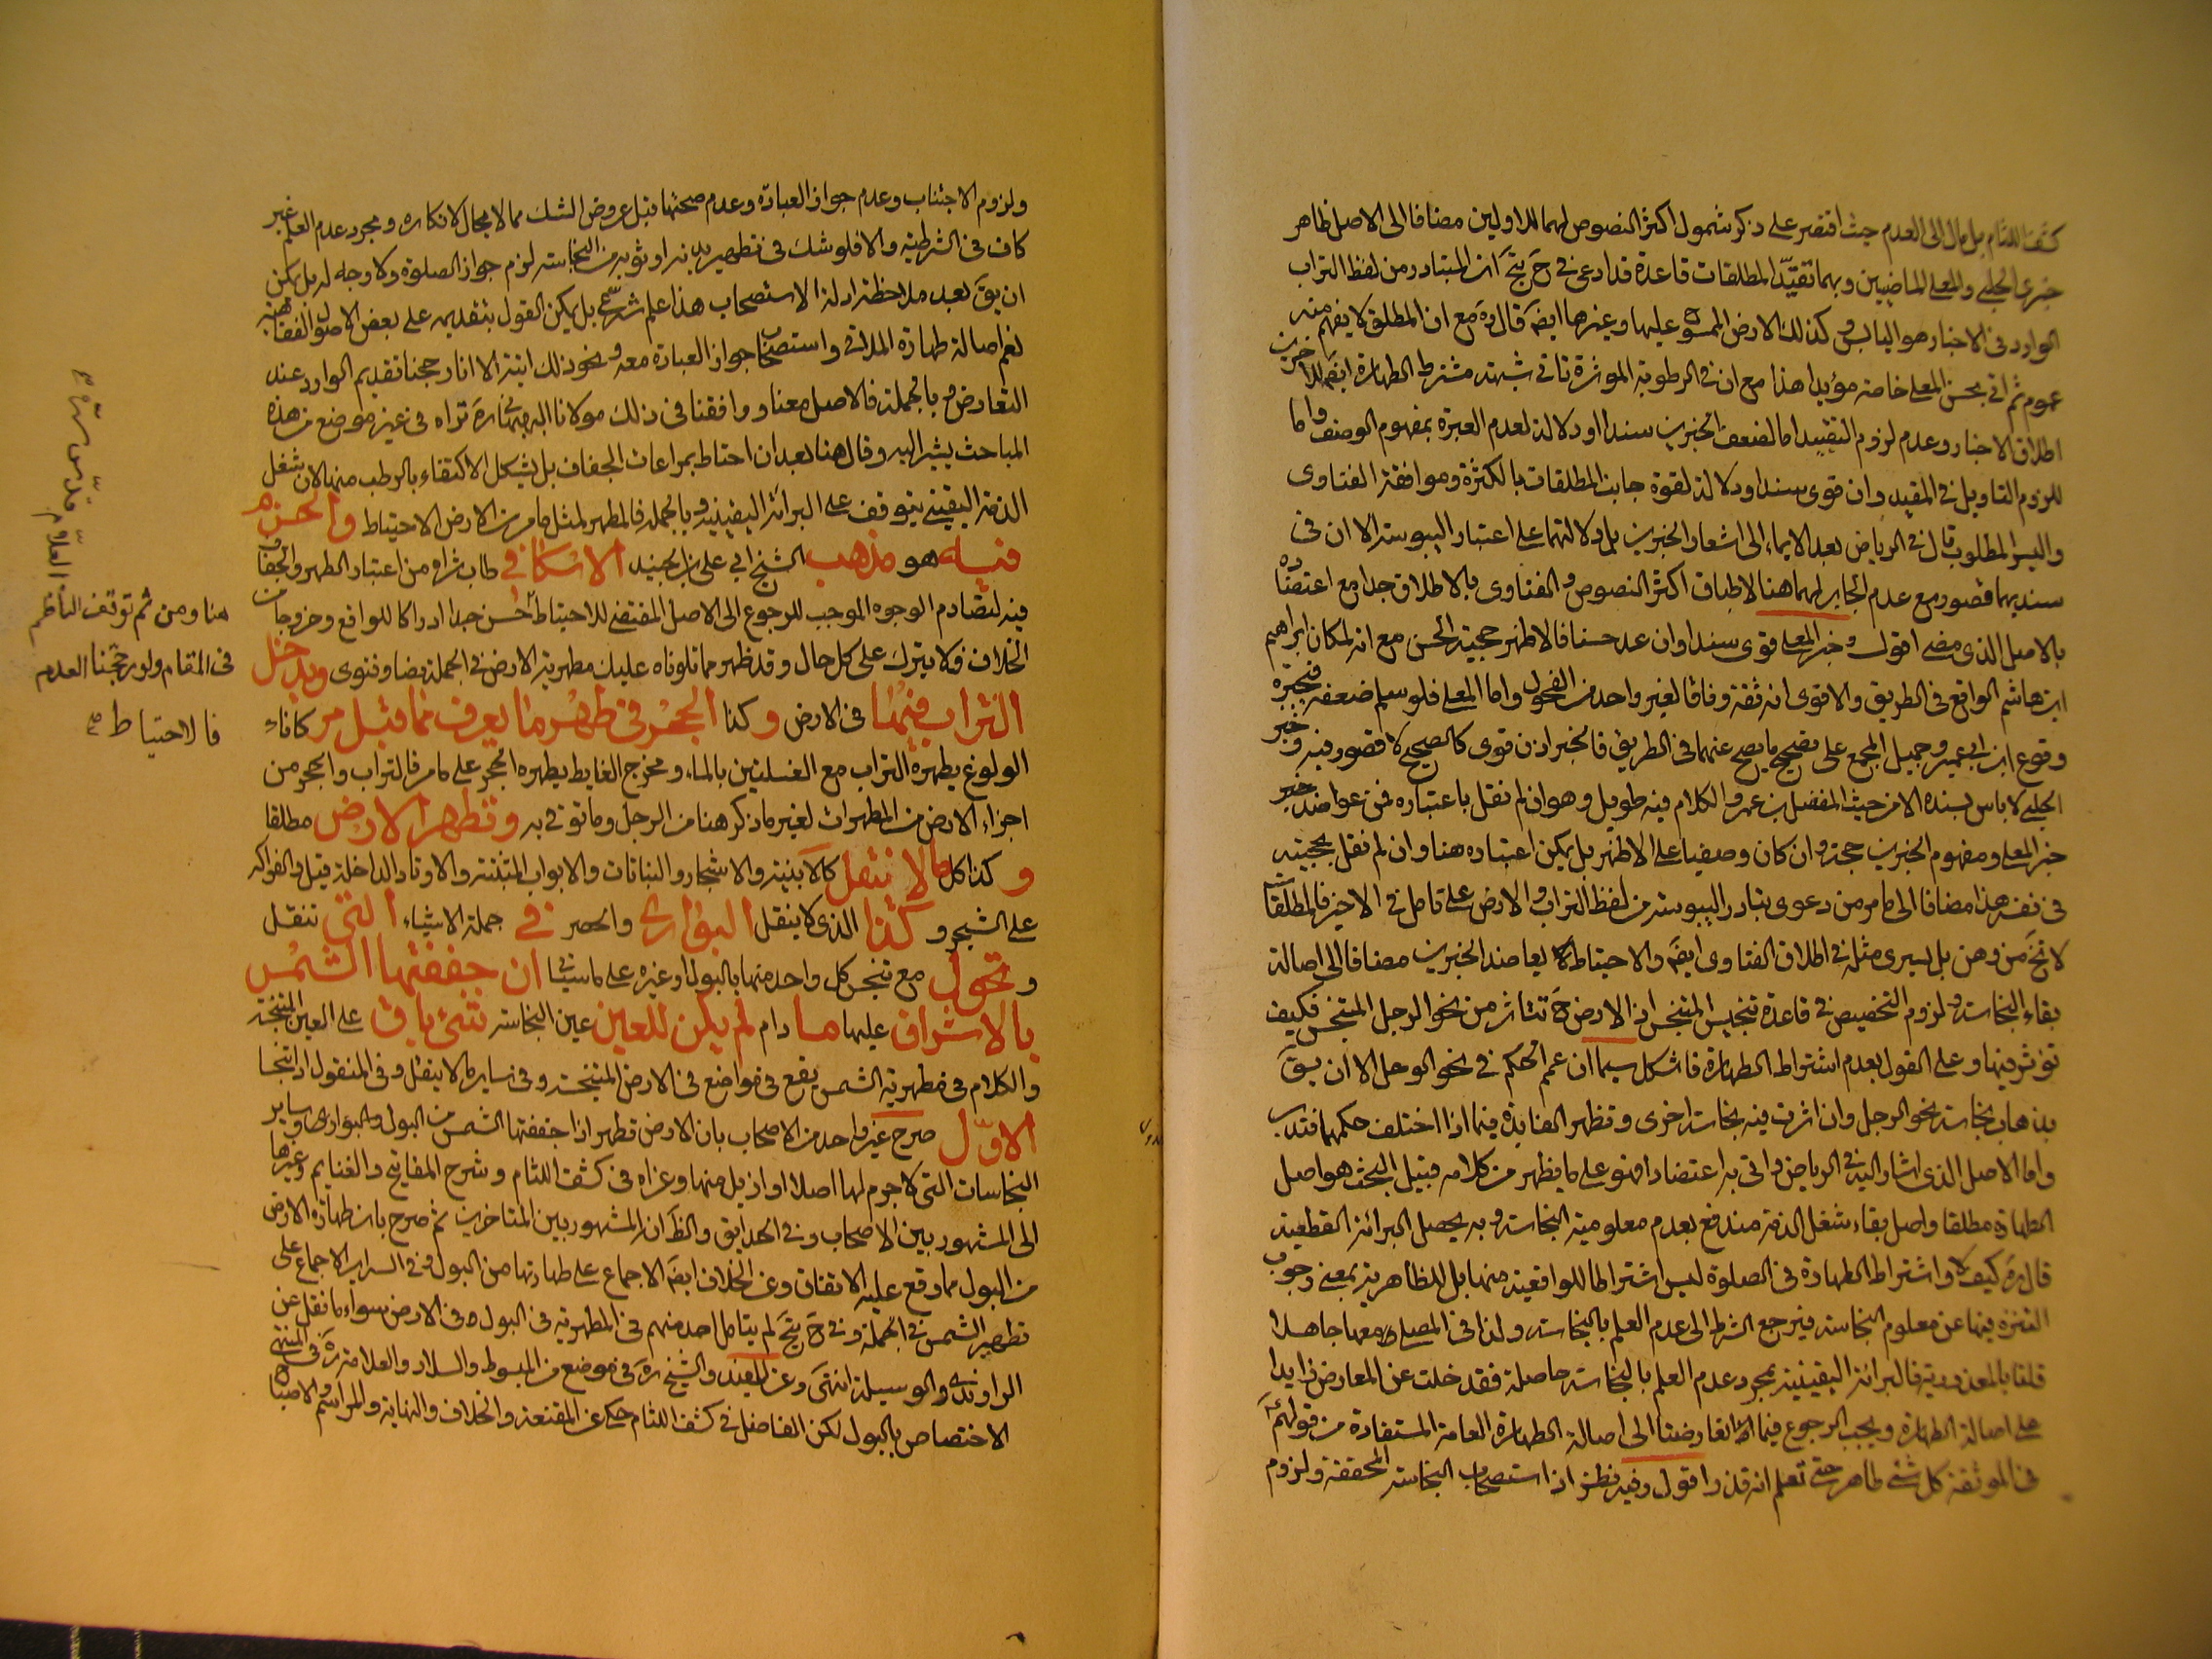 كشف اللثام بل مال الى العدم حيث اقتصر على ذكر شمول اكثر النصوص لهما للاولين مضافا الى الاصل ظاهر
خبرى الحلبي والمعلى الماضيين وبهما تقيّد المطلقات قاعدة قد ادعى في ح يتج ان المتبادر من لفظ التراب
الوارد في الاخبار هو اليابس وكذلك الارض الممشو عليها وغيرها ايضَ قال رَه مع ان المطلق لا يفهم منه
عموم ثم اتى بحسن المعلى خاصة مؤيدا هذا مع ان في الرطوبة الموثرة تاتى شبهة مشترط الطهارة ايضَ
اطلاق الاخبار وعدم لزوم التقييد اما لضعف الخبرين سندا او دلالة لعدم العبرة بمفهوم الوصف واما
للزوم التاويل في المقيد وان قوى سندا ودلالة لقوة جانب المطلقات بالكثرة وموافقة الفتاوى
واليه المطلوب قال في الرياض بعد الايماء الى اشعار الخبرين بل دلالتهما على اعتبار اليبوسة الا ان في
سنديهما قصور مع عدم الجابر لهما هنا لاطباق اكثر النصوص والفتاوى بالاطلاق جدا مع اعتضاده
بالاصل الذى مضى اقول وخبر المعلى قوى سندا وان عد حسنا فالاظهر حجية الحسن مع انه لمكان ابراهيم
ابن هاشم الواقع في الطريق والاقوى انه ثقة وفاقا لغير واحد من الفحول واما المعلى فلو سلم ضعفه فيجبره
وقوع ابن ابي عمير وجميل المجمع على تصحيح ما يصح عنهما في الطريق فالخبر اذن قوى كالصحيح لا قصور فيه وخبر
الحلبي لا باس بسنده الا من حيث المفضل بن عمر والكلام فيه طويل وهو ان لم نقل باعتباره فمن عواضد خبر
خبر المعلى ومفهوم الخبرين حجة وان كان وصفيا على الاظهر بل يمكن اعتباره هنا وان لم نقل بحجيته
في نفسه هذا مضافا الى ما مر من دعوى تبادر اليبوسة من لفظ التراب والارض على تامل في الاخير فالمطلقات
لا تخَ من وهن بل يسرى مثله في اطلاق الفتاوى ايضَ والاحتياط يعاضد الخبرين مضافا الى اصالة
بقاء النجاسة ولزوم التخصيص في قاعدة تنجيس المتنجس اذ الارض ح تتاثر من نحو الرجل المتنجس فكيف
تؤثر فيها وعلى القول بعدم اشتراط الطهارة فاشكل سيما ان عمم الحكم في نحو الوحل الا ان يقَ
بذهاب نجاسة نحو الرجل وان اثرت فيه نجاسة اخرى وتظهر الفايدة فيما اذا اختلف حكمهما فتدبر
واما الاصل الذى اشار اليه في الرياض واتى به اعتضادا فهو على ما يظهر من كلامه قبيل البحث هو اصل
الطهارة مطلقا واصل بقاء شغل الذمة مندفع بعدم معلومية النجاسة وبه يحصل البرائة القطعية
قال رَه كيف لا واشتراط الطهارة في الصلوة ليس اشتراطا للواقعية منها بل للظاهرية بمعنى وجوب
التنزه فيها عن معلوم النجاسة فيرجع الشرط الى عدم العلم بالنجاسة ولذا في المصلى معها جاهلا
قلنا بالمعذورية فالبرائة اليقينية بمجرد عدم العلم بالنجاسة حاصلة فقد خلت عن المعارض زايدا
على اصالة الطهارة ويجب الرجوع فيما تعارضتا الى اصالة الطهارة العامة المستفادة من قولهم
في الموثقة كل شئ طاهر حتى تعلم انه قذر اقول وفيه نظر اذ استصحاب النجاسة المحققة ولزوم
ولزوم الاجتناب وعدم جواز العبادة وعدم صحتها قبل عروض الشك مما لا مجال لانكاره ومجرد عدم العلم غير
كاف في الشرطية والا فلو شك في تطهير بدنه او ثوبه من النجاسة لزم جواز الصلوة ولا وجه له بل يمكن
ان يقَ بعد ملاحظة ادلة الاستصحاب هذا علم شرعي بل يمكن القول بتقديمه على بعض الاصول الفقاهية
نعم اصالة طهارة الملاقى واستصحاب جواز العبادة معه ونحو ذلك اتية الا انا رجحنا تقديم الوارد عند
التعارض وبالجملة فالاصل معنا ووافقنا في ذلك مولانا البهبهانى رَه تراه في غير موضع من هذه
المباحث يشير اليه وقال هنا بعد ان احتاط بمراعات الجفاف بل يشكل الاكتفاء بالرطب منها لان شغل
الذمة اليقيني يتوقف على البرائة اليقينية وبالجملة فالمطهر لمثل ما مر من الارض الاحتياط والحزم
فيه هو مذهب الشيخ ابي على بن الجنيد الاسكافي طاب ثراه من اعتبار الطهر والجفاف
فيه لتصادم الوجوه الموجب للرجوع الى الاصل المقتضى للاحتياط حسن جدا ادراكا للواقع وخروجا من
الخلاف فلا يترك على كل حال وقد ظهر مما تلوناه عليك مطهرية الارض في الجملة نصا وفتوى ويدخل
التراب فيها في الارض وكذا الحجر في طهر ما يعرف مما قبل مر كاناء
الولوغ يطهره التراب مع الغسلتين بالماء ومخرج الغايط يطهره الحجر على ما مر فالتراب والحجر من
اجزاء الارض من المطهرات لغير ما ذكر هنا من الرجل وما توقى به وتطهر الارض مطلقا
وكذا كل ما لا تنقل كالابنية والاشجار والنباتات والابواب المثبتة والاوتاد الداخلة قيل والفواكه
على الشجر وكذا الذى لا ينقل البوارى والحصر في جملة الاشياء التى تنقل
وتحول مع تنجس كل واحد منها بالبول او غيره على ما سياتى ان جففتها الشمس
بالاشراق عليها ما دام لم يكن للعين عين النجاسة شئ باق على العين المتنجسة
والكلام في مطهرية الشمس يقع في مواضع في الارض المتنجسة وفي ساير ما لا ينقل وفي المنقول اذا تنجسا
الاوّل صرح غير واحد من الاصحاب بان الارض تطهر اذا جففتها الشمس من البول والبوارى وساير
النجاسات التى لا جرم لها اصلا او ازيل منها وعزاه في كشف اللثام وشرح المفاتيح والغنايم وغيرها
الى المشهور بين الاصحاب وفي الحدايق والظَ انه المشهور بين المتاخرين ثم صرح بان طهارة الارض
من البول مما وقع عليه الاتفاق وعن الخلاف ايضَ الاجماع على طهارتها من البول وفي السراير الاجماع على
تطهير الشمس في الجملة وفي ح يتج لم يتامل احد منهم في المطهرية في البول في الارض سواء ما نقل عن
الراوندى والوسيلة انتهى وعن المفيد والشيخ رَه في موضع من المبسوط والسلار والعلامة رَه في المنتهى
الاختصاص بالبول لكن الفاضل في كشف اللثام حكى عن المقنعة والخلاف والنهاية والمراسم والاصباح
هنا ومن ثم توقف الناظم
العلّام قدّس سرّه
في المقام ولو رجّحنا العدم
فالاحتياط